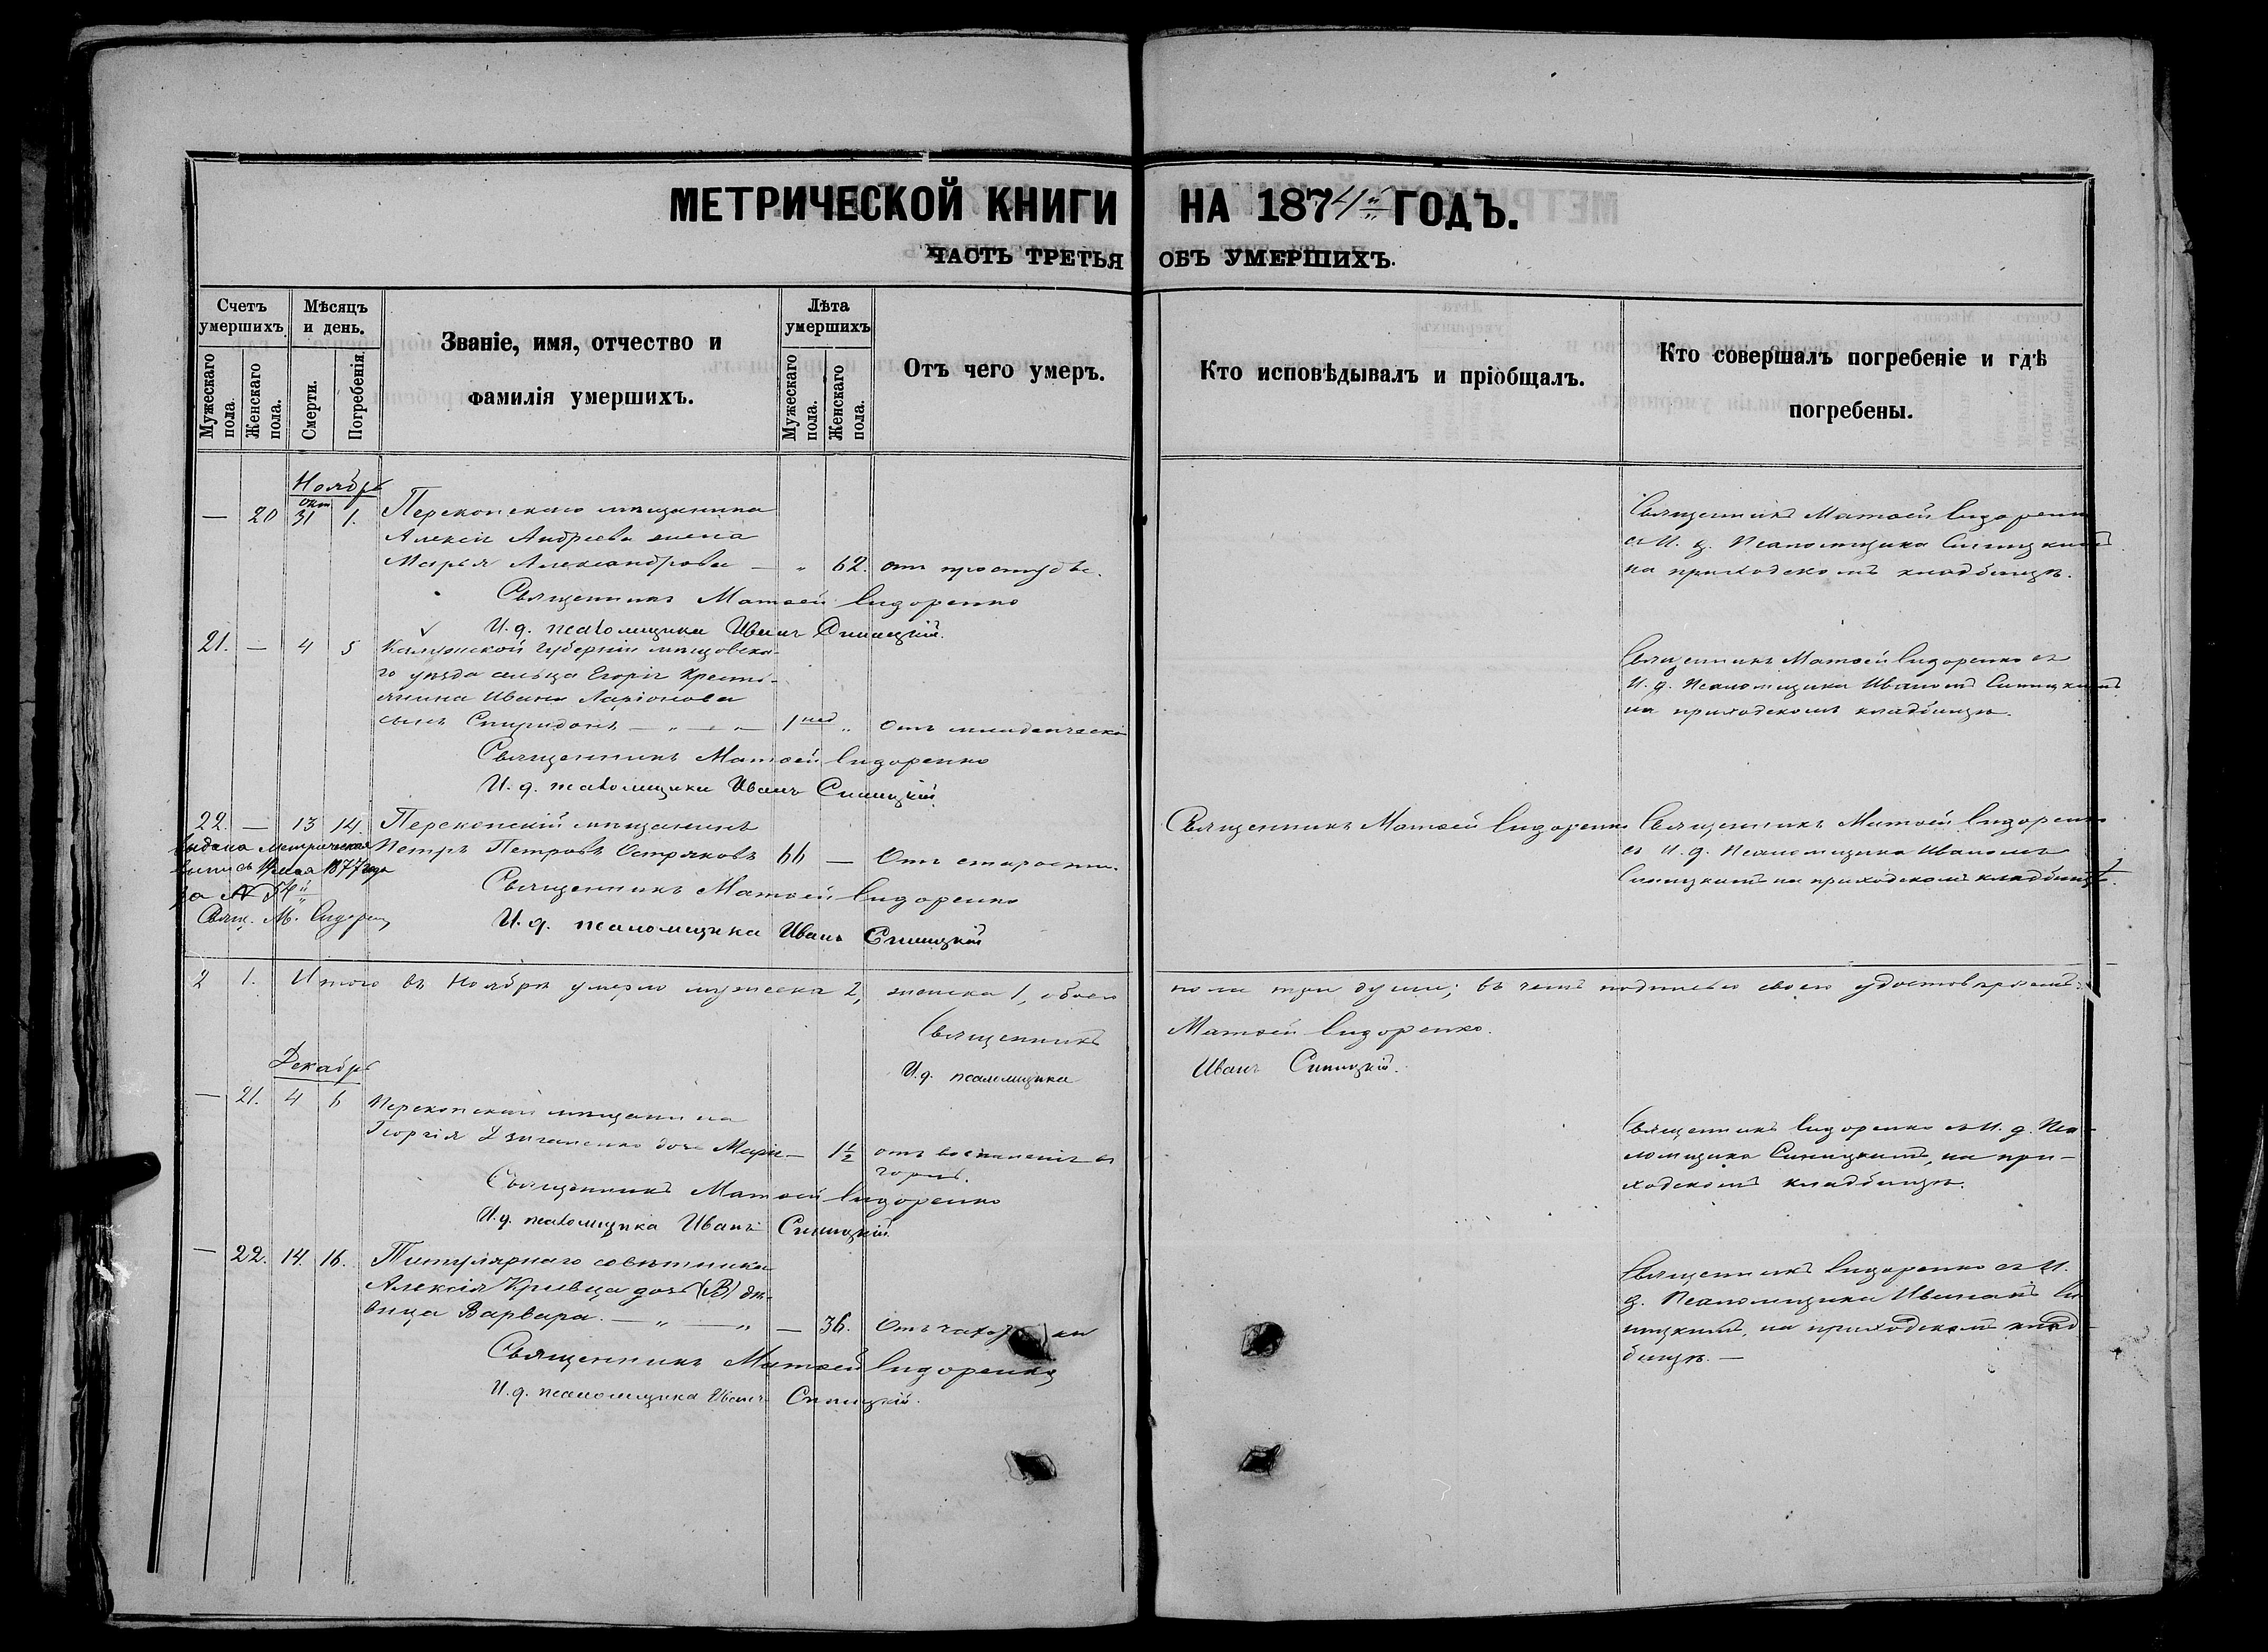 МЕТРИЧЕСКОЙ КНИГИ НА 1874й ГОДЪ.
ЧАСТЬ ТРЕТЬЯ ОБЪ УМЕРШИХЪ.
Счетъ умершихъ
Мужескаго пола.
Женскаго пола.
Мѣсяцъ и день.
Смерти.
Погребенія.
Званіе, имя, отчество и
фамилія умершихъ.
Лѣта умершихъ
Мужескаго пола.
Женскаго пола.
Отъ чего умеръ.
Кто исповѣдывалъ и пріобщалъ.
Кто совершалъ погребеніе и гдѣ
погребены.
Ноябрь
— 20 окт 31 1. Перекопскаго мѣщанина
Алексія Андреева жена
Марья Александрова — " 62. отъ простуды.
Священникъ Матѳей Сидоренко
И. д. псаломщика Иванъ Синицкій.
Священникъ Матѳей Сидоренко
съ И. д. Псаломщика Синицкимъ
на приходскомъ кладбищѣ.
21. — 4 5 Калужской Губерніи мѣщовска-
го уѣзда сельца Егорья Крестья-
янина Ивана Ларіонова
сынъ Спиридонъ — " — " — 1 нед " Отъ младенческо
Священникъ Матѳей Сидоренко
И. д. псаломщика Иванъ Синицкій
Священникъ Матѳей Сидоренко съ
И. д. Псаломщика Иваномъ Синицкимъ
на приходскомъ кладбищѣ.
22. — 13 14. Перекопскій мѣщанинъ
Петръ Петровъ Остряковъ 66 — Отъ старости.
Священникъ Матѳей Сидоренко
И. д. псаломщика Иванъ Синицкій
выдана метрическая
выпись мая 1877 года
за №
Свящ. М. Сидорен
Священникъ Матѳей Сидоренко
Священникъ Матѳей Сидоренко
съ И. д. Псаломщика Иваномъ
Синицкимъ на приходскомъ кладбищѣ.
2 1. Итого въ Ноябрѣ умерло мужеска 2, женска 1, обоего пола три души; въ чемъ подписью своею удостовѣряемъ:
Священникъ Матѳей Сидоренко.
И. д. псаломщика Иванъ Синицкій.
Декабрь
— 21. 4 6 Перекопскаго мѣщанина
Георгія дочь Марія — 1½ отъ воспаленія въ
горлѣ.
Священникъ Матѳей Сидоренко
И. д. псаломщика Иванъ Синицкій
Священникъ Сидоренко съ И. д. Пса-
ломщика Синицкимъ, на при-
ходскомъ кладбищѣ.
— 22. 14. 16. Титулярнаго совѣтника
Алексія Кривца дочь (В) дѣ-
вица Варвара. — " — " — 36. Отъ
Священникъ Матѳей Сидоренко
И. д. псаломщика Иванъ Синицкій.
Священникъ Сидоренко съ И.
д. Псаломщика Иваномъ Си
ницкимъ, на приходскомъ клад
бищѣ. —